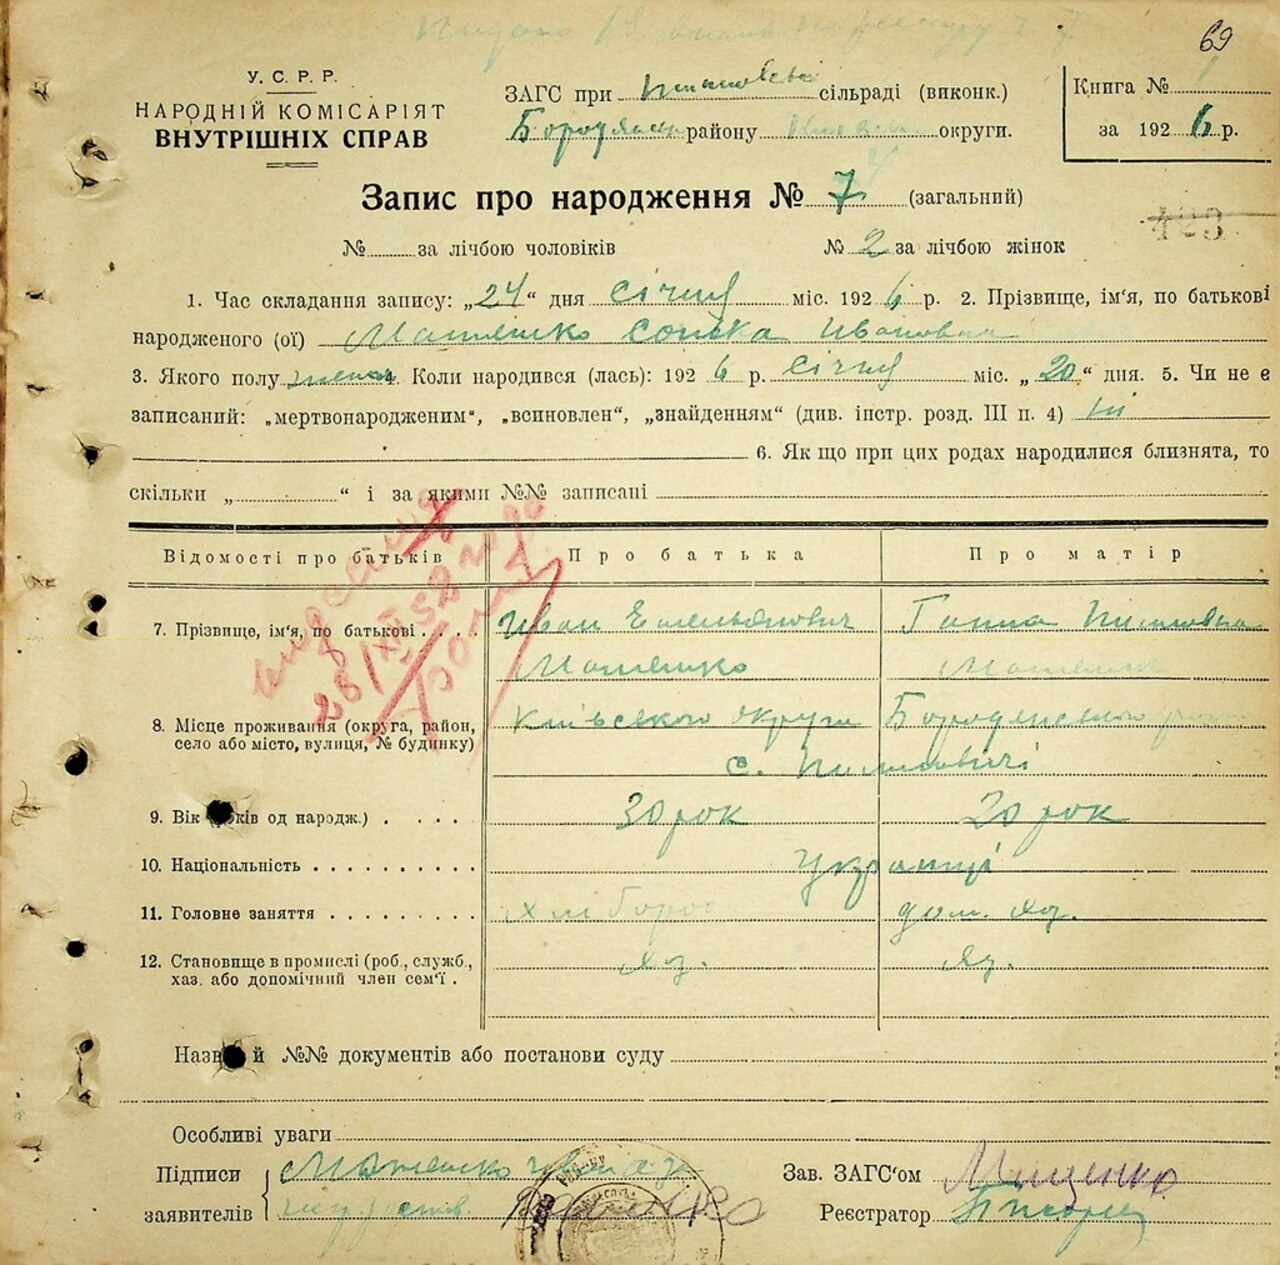 69
У. С. Р. Р.
НАРОДНІЙ КОМІСАРІЯТ
ВНУТРІШНІХ СПРАВ
ЗАГС при сільраді (виконк.)
Бородянськ району округи.
Книга №
за 1926 р.
Запис про народження № 7 (загальний)
№ за лічбою чоловіків № 2 за лічбою жінок
1. Час складання запису: „24“ дня Січня міс. 1926 р. 2. Прізвище, ім'я, по батькові
народженого (ої) Матешко Сонька Ивановна
3. Якого полу женск. 4. Коли народився (лась): 1926 р. Січня міс. „20“ дня. 5. Чи не є
записаний: „мертвонародженим“, „всиновлен“, „знайденням“ (див. інстр. розд. III п. 4) ні
6. Як що при цих родах народилися близнята, то
скільки „ “ і за якими №№ записані
Відомості про батьків Про батька Про матір
7. Прізвище, ім'я, по батькові Иван Емельянович Ганна Пилиповна
Матешко Матешко
8. Місце проживання (округа, район, Київського округи Бородянського
село або місто, вулиця, № будинку)
с. Пилиповичі
9. Вік (років од народж.) 30 рок 20 рок
10. Національність Українці
11. Головне заняття хлібороб дом. хаз.
12. Становище в промислі (роб., служб., хаз. хаз.
хаз. або допомічний член сем'ї .
Назва й №№ документів або постанови суду
Особливі уваги
Підписи Матешко
заявителів
Зав. ЗАГС'ом Мищенко
Реєстратор